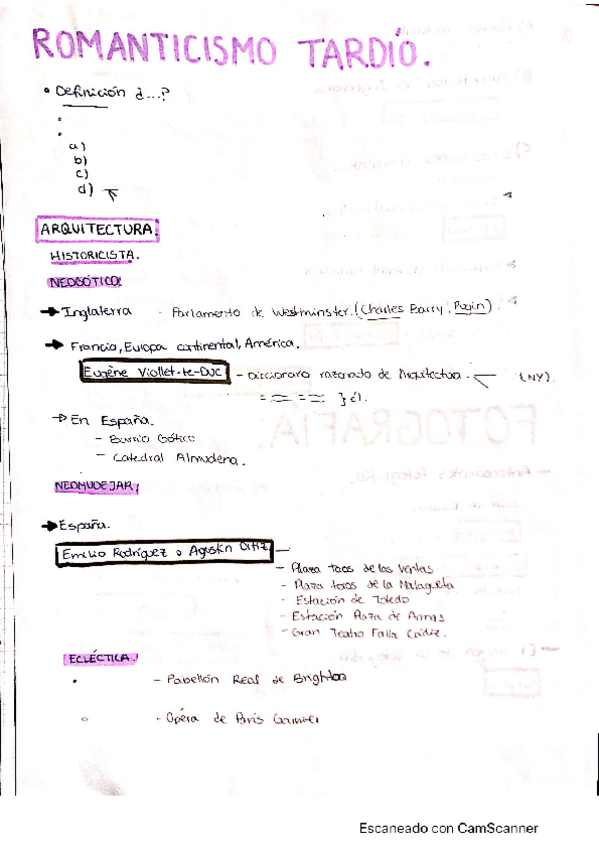 ROMANTICISMO TARDÍO.
• Definición ¿...?
•
•
a)
b)
c)
d)
ARQUITECTURA:
HISTORICISTA.
NEOGÓTICO:
→ Inglaterra - Parlamento de Westminster. (Charles Barry, Pugin).
→ Francia, Europa continental, América.
Eugène Viollet-le-Duc - Diccionario razonado de Arquitectura. (NY).
= = = = } él.
→ En España.
- Barrio Gótico
- Catedral Almudena.
NEOMUDEJAR:
→ España.
Emilio Rodríguez o Agustín Ortiz -
- Plaza toros de las Ventas
- Plaza toros de la Malagueta
- Estación de Toledo
- Estación Plaza de Armas
- Gran Teatro Falla Cádiz.
ECLÉCTICA:
• - Pabellón Real de Brighton
• - Ópera de París Garnier
Escaneado con CamScanner